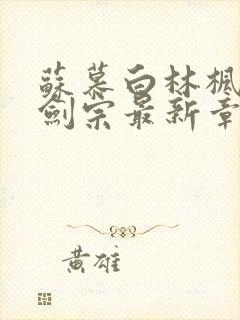 蘇慕白林楓
劍宗最新章
黃雄